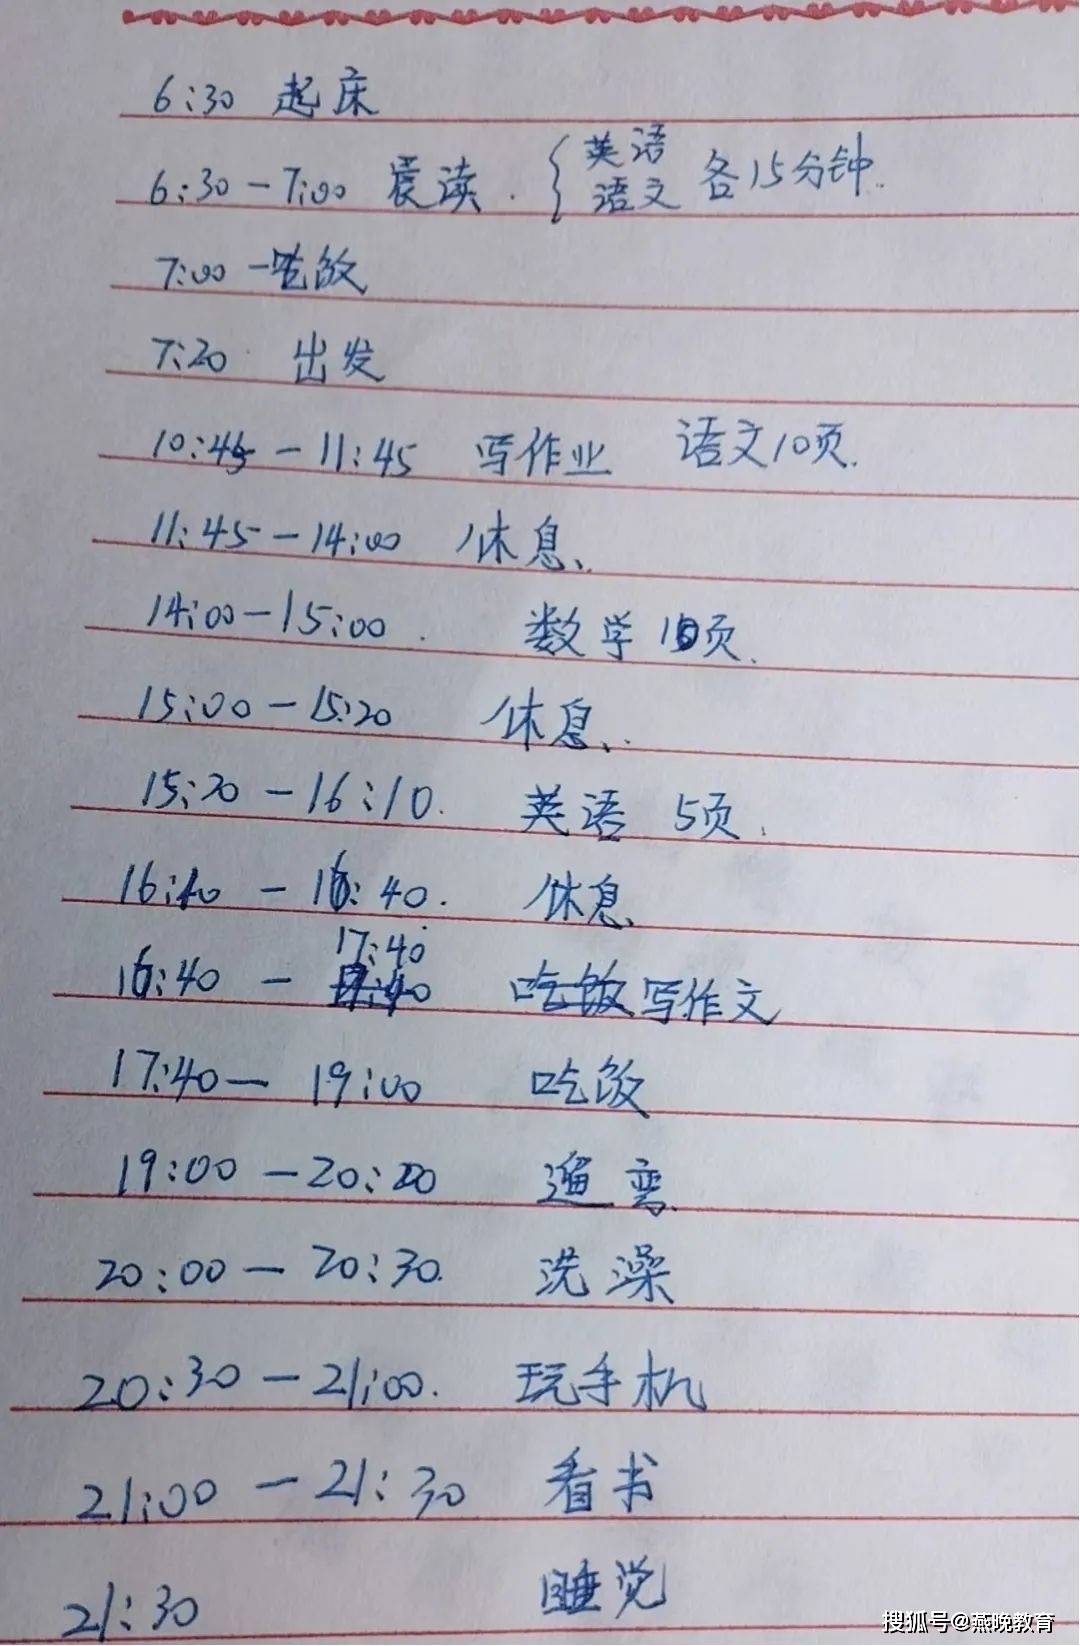 6:30 起床
6:30-7:00 晨读. { 英语 语文 各15分钟.
7:00 - 吃饭
7:20 出发
10:45-11:45 写作业 语文10页.
11:45-14:00 休息.
14:00-15:00. 数学10页.
15:00-15:20 休息.
15:20-16:10. 英语 5页.
16:10-16:40. 休息.
16:40-17:40 写作文
17:40-19:00 吃饭
19:00-20:00 遛弯.
20:00-20:30. 洗澡
20:30-21:00. 玩手机
21:00-21:30 看书
21:30 睡觉
搜狐号@燕晚教育